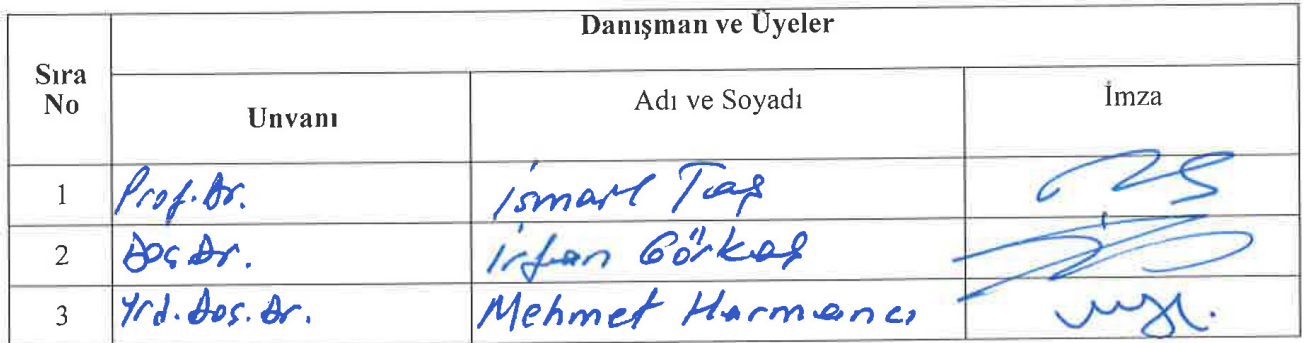 Danışman ve Üyeler
Sıra No
Unvanı
Adı ve Soyadı
İmza
1 Prof. Dr. İsmail Taş
2 Doç Dr. İrfan Görkaş
3 Yrd. Doç. Dr. Mehmet Harmancı